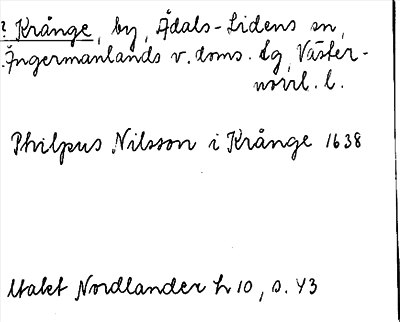 ? Krånge, by, Ådals-Lidens sn,
Ångermanlands v. doms. lg, Väster-
norrl. l.
Philpus Nilsson i Krånge 1638
Utdet Nordlander h 10, s. 43